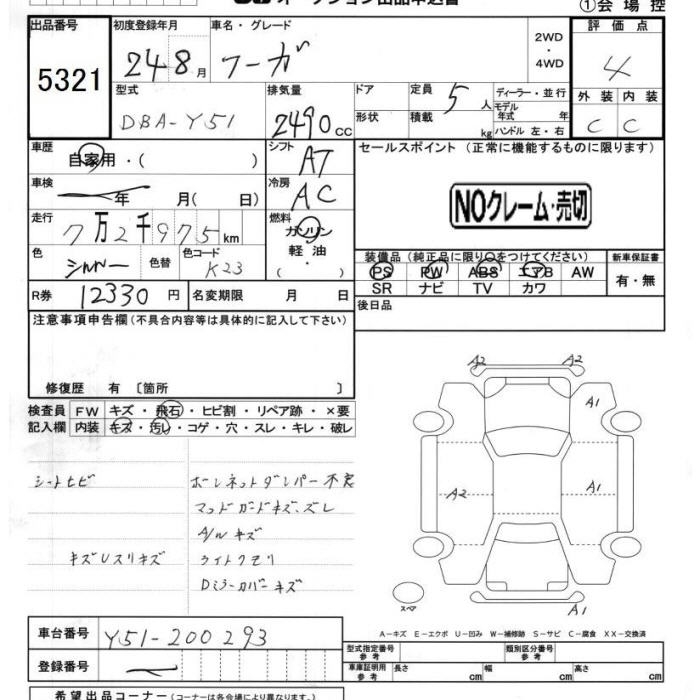 オークション出品申込書
①会場控
出品番号 初度登録年月 車名・グレード 2WD・4WD 評価点
5321 24 8月 フーガ 4
型式 排気量 ドア 定員 5人 ディーラー・並行 外装 内装
DBA-Y51 2490cc 形状 積載 kg モデル年式 年 ハンドル 左・右 C C
車歴 自家用・( ) シフト AT セールスポイント (正常に機能するものに限ります)
車検 年 月(日) 冷房 AC
NOクレーム・売切
走行 7万2千975km 燃料 ガソリン 軽油 ・( )
色 シルバー 色替 色コード K23
装備品 (純正品に限り○をつけてください) 新車保証書
PS PW ABS エアB AW 有・無
SR ナビ TV カワ
R券 12330円 名変期限 月 日 後日品
注意事項申告欄 (不具合内容等は具体的に記入して下さい)
修復歴 有 〔箇所 〕
検査員 FW キズ・飛石・ヒビ割・リペア跡・×要
記入欄 内装 キズ・汚れ・コゲ・穴・スレ・キレ・破レ
シートヒビ
ボンネットダンパー不良
マッドガードキズ、ズレ
A/Wキズ
キズUスリキズ
ライトクモリ
Dミラーカバーキズ
A2 A2
A1
A2 A1
A1
スペア
A-キズ E-エクボ U-凹み W-補修跡 S-サビ C-腐食 XX-交換済
車台番号 Y51-200293
型式指定番号 参考 類別区分番号 参考
登録番号
車庫証明用 参考 長さ cm 幅 cm 高さ cm
希望出品コーナー (コーナーは各会場により異なります。)